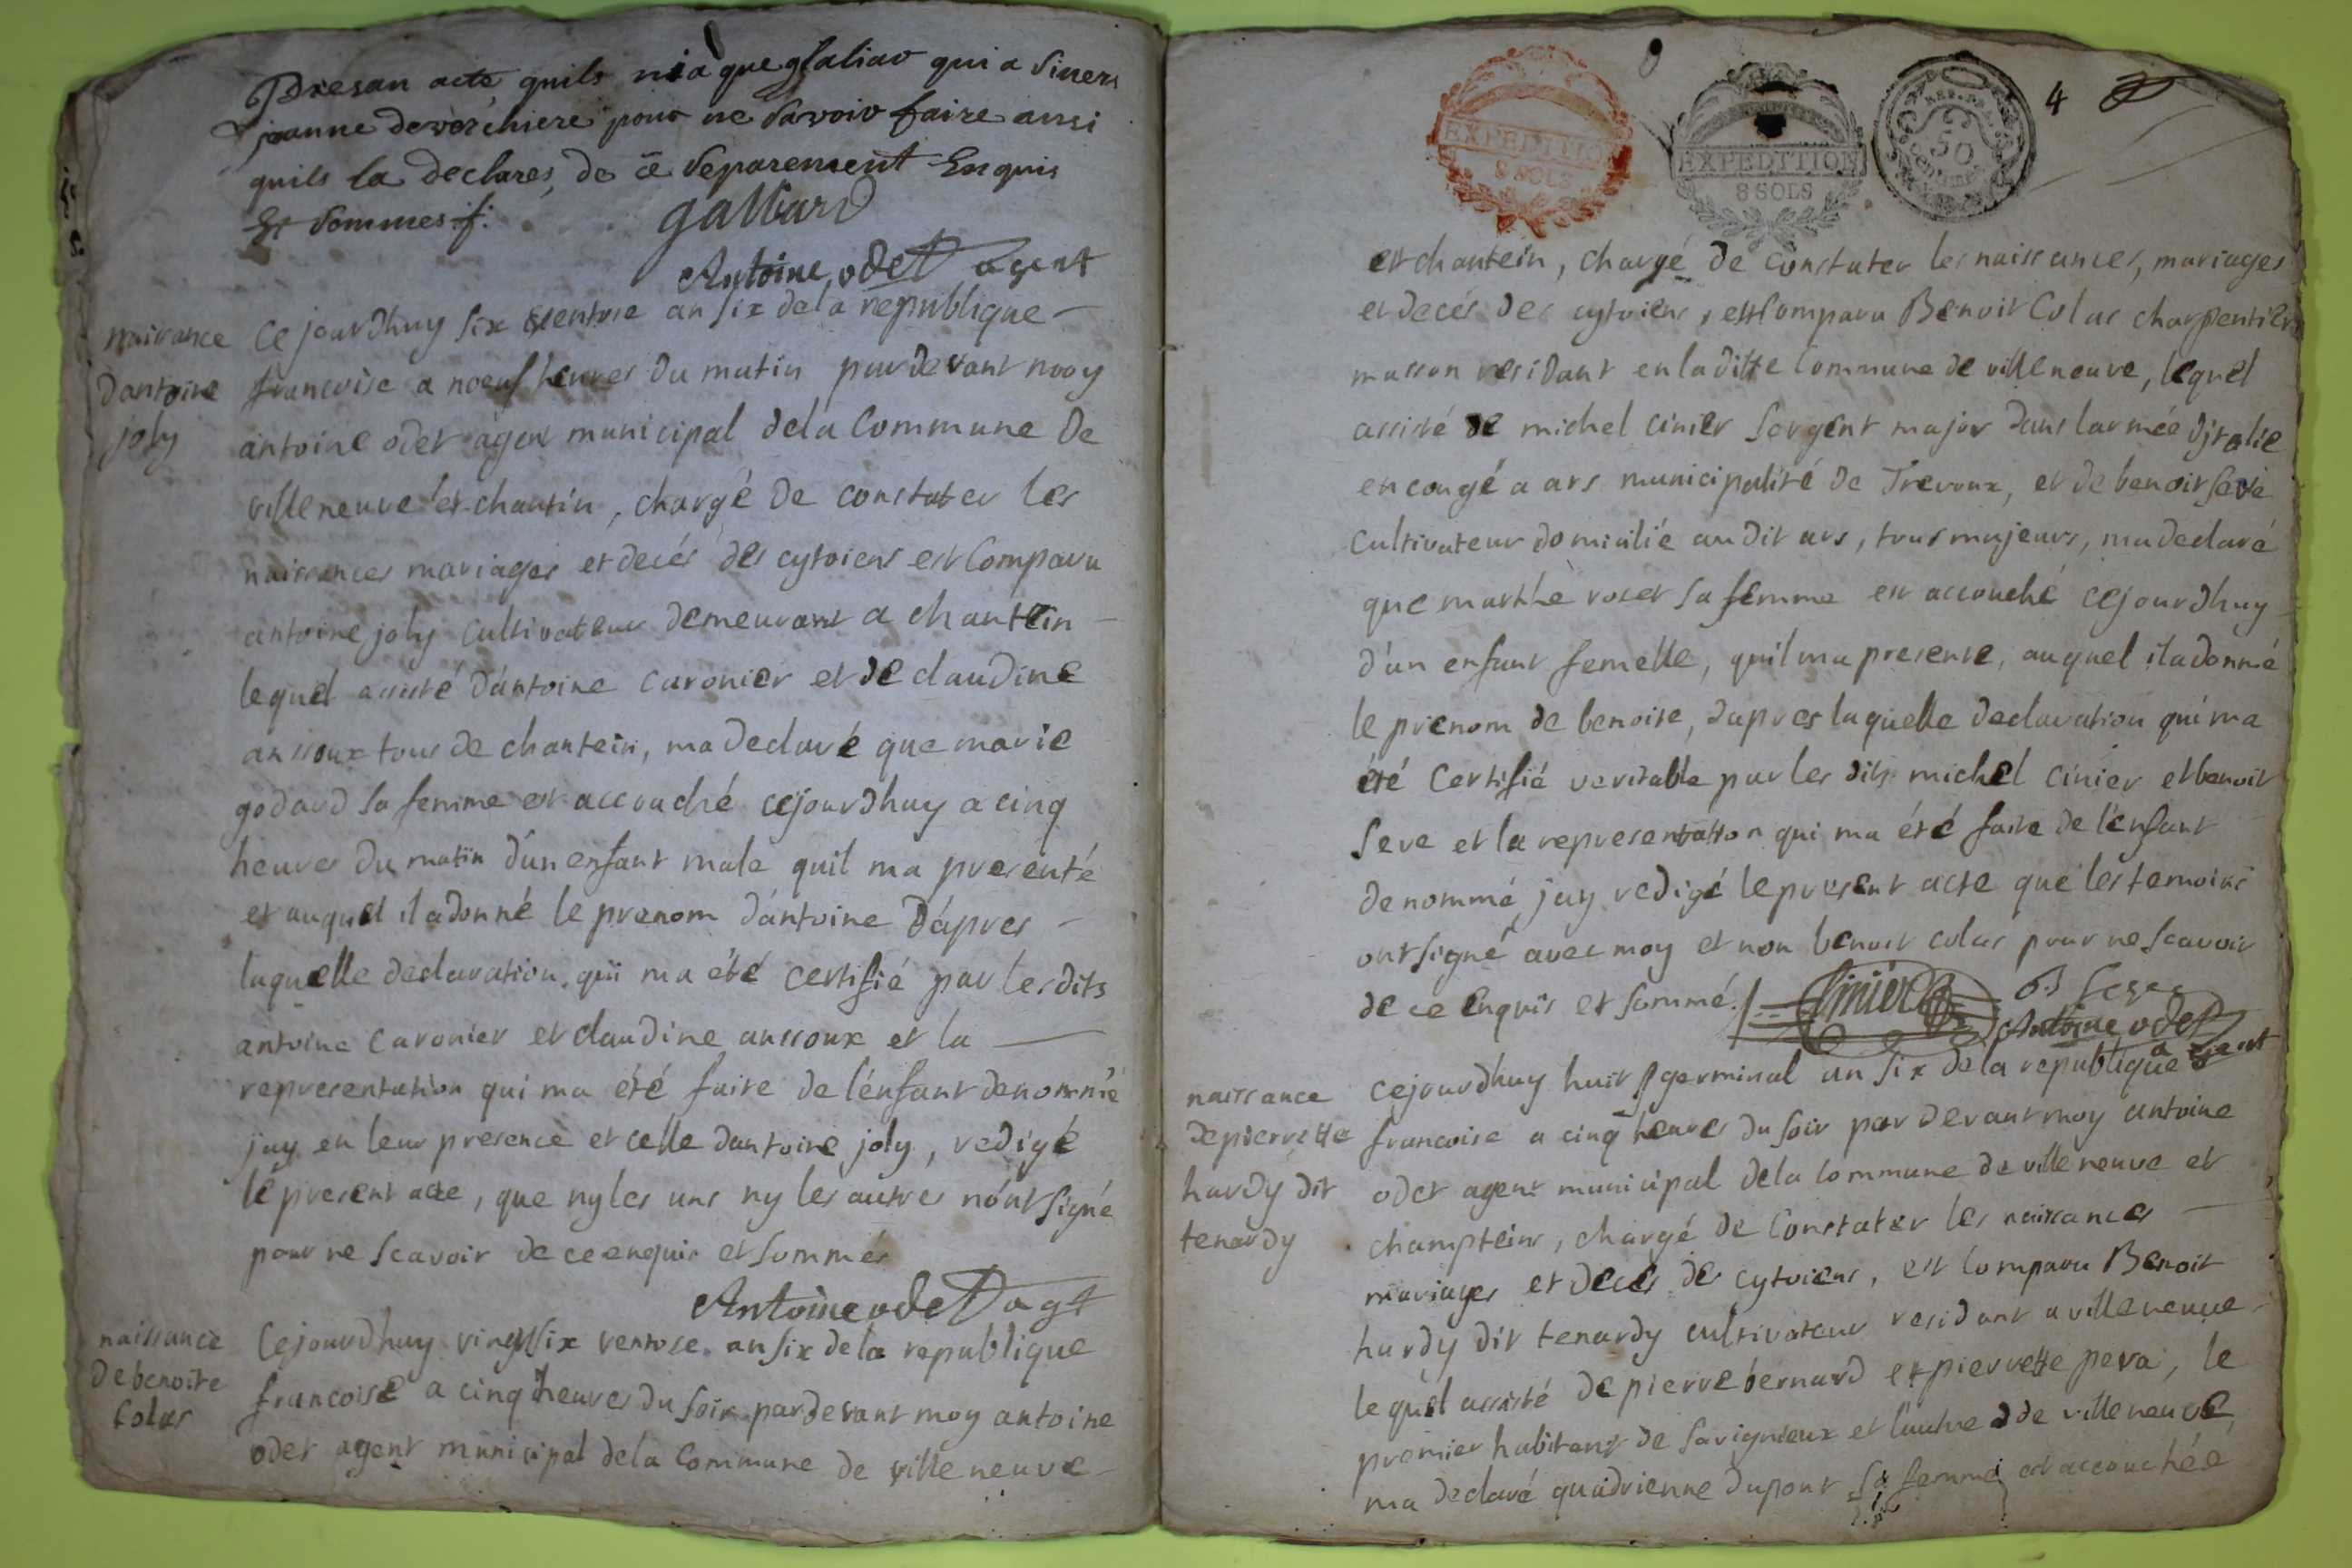 Presan acte quils nia que glaliar qui a Siners
joanne deverchiere pour ne Savoir faire ansi
quils la declares, de ce Separement Enquis
Et Sommes f.
galliard
Antoine odet agent
naissance
dantoine
joly
Ce jourdhuy six ventose an six dela republique
francoise a noeuf heures du matin pardevant nooy
antoine odet agent municipal dela Commune de
villeneuve et chantin, chargé de constater les
naissances mariages et decés des cytoiens est Comparu
antoine joly cultivateur demeurant a chantein
lequel assisté dántoine caronier et de claudine
anssoux tous de chantein, ma declaré que marie
godard sa femme est accouché cejourdhuy a cinq
heures du matin dún enfant male quil ma presenté
et auquel il adonné le prenom dántoine Dápres
laquelle declaration. qui ma été certifié par lesdits
antoine caronier et claudine anssoux et la
representation qui ma été faite de lénfant denommé
jay en leur presence et celle dantoine joly, redigé
le present acte, que ny les uns ny les autres nónt signé
pour ne scavoir de ce enquis et sommés
Antoine odet agt
naissance
de benoite
Colas
Cejourdhuy vingtsix ventose. an six dela republique
francoise a cinq heures du soir pardevant moy antoine
odet agent municipal dela Commune de villeneuve
EXPEDITION
8 SOLS
EXPEDITION
8 SOLS
REP. FRA.
50
Centimes
4
et chantein, chargé de constater les naissances, mariages
et decés des cytoiens, est Comparu Benoit Colas charpentier
masson residant en laditte Commune de villeneuve, lequel
assisté de michel cinier sergent major dans larmée djtalie
en congé a ars municipalité de Trevoux, et de benoit seve
Cultivateur domicilié audit ars, tous majeurs, ma declaré
que marthe roset sa femme est accouché cejourdhuy
d'un enfant femelle, quil ma presente, auquel il adonné
le prenom de benoite, dapres laquelle declaration qui ma
été Certifié veritable par les dits michel cinier et benoit
seve et la representation qui ma été faite de lénfant
denommé, jay redigé le present acte que les temoins
ont signé avec moy et non benoit colas pour ne scavoir
de ce enquis et sommé.
Sinier
B Seve
Antoine odet
agent
naissance
de pierrette
hardy dit
tenardy
Cejourdhuy huit germinal an six dela republique
francoise a cinq heures du soir par devant moy antoine
odet agent municipal dela Commune de villeneuve et
champtein, chargé de Constater les naissances
mariages et decés de cytoiens, est Comparu Benoit
hardy dit tenardy cultivateur residant a villeneuve
lequel assisté de pierre bernard et pierrette pera, le
premier habitant de savigneux et lautre de villeneuve,
ma declaré quadrienne dupont sa femme est accouchée